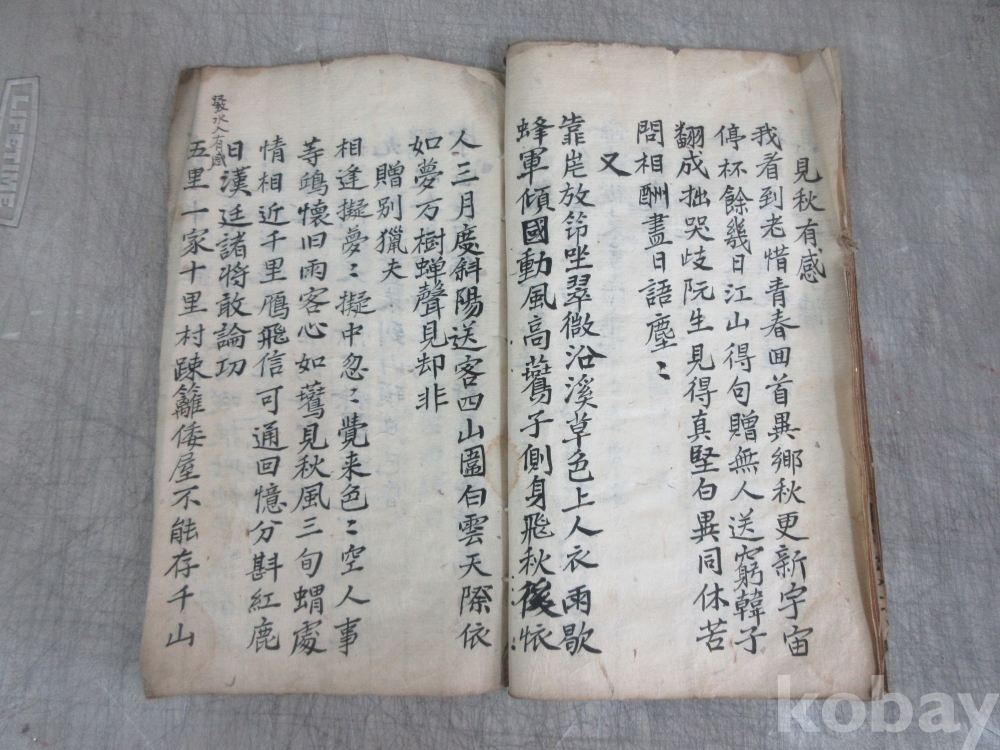 見秋有感
我看到老惜青春回首異鄉秋更新宇宙
停杯餘幾日江山得句贈無人送窮韓子
翻成拙哭歧阮生見得真堅白異同休苦
問相酬盡日語塵〻
又
靠岸放笻坐翠微沿溪草色上人衣雨歇
蜂軍傾國動風高鷰子側身飛秋後依
人三月度斜陽送客四山圍白雲天際依
如夢万樹蟬聲見却非
贈別獵夫
相逢擬夢〻擬中忽〻覺来色〻空人事
等鴻懷旧雨客心如鷰見秋風三旬蝟處
情相近千里鴈飛信可通回憶分斟紅鹿
日漢廷諸將敢論功
水人有感
五里一家十里村踈籬倭屋不能存千山
LIFETIME
kobay